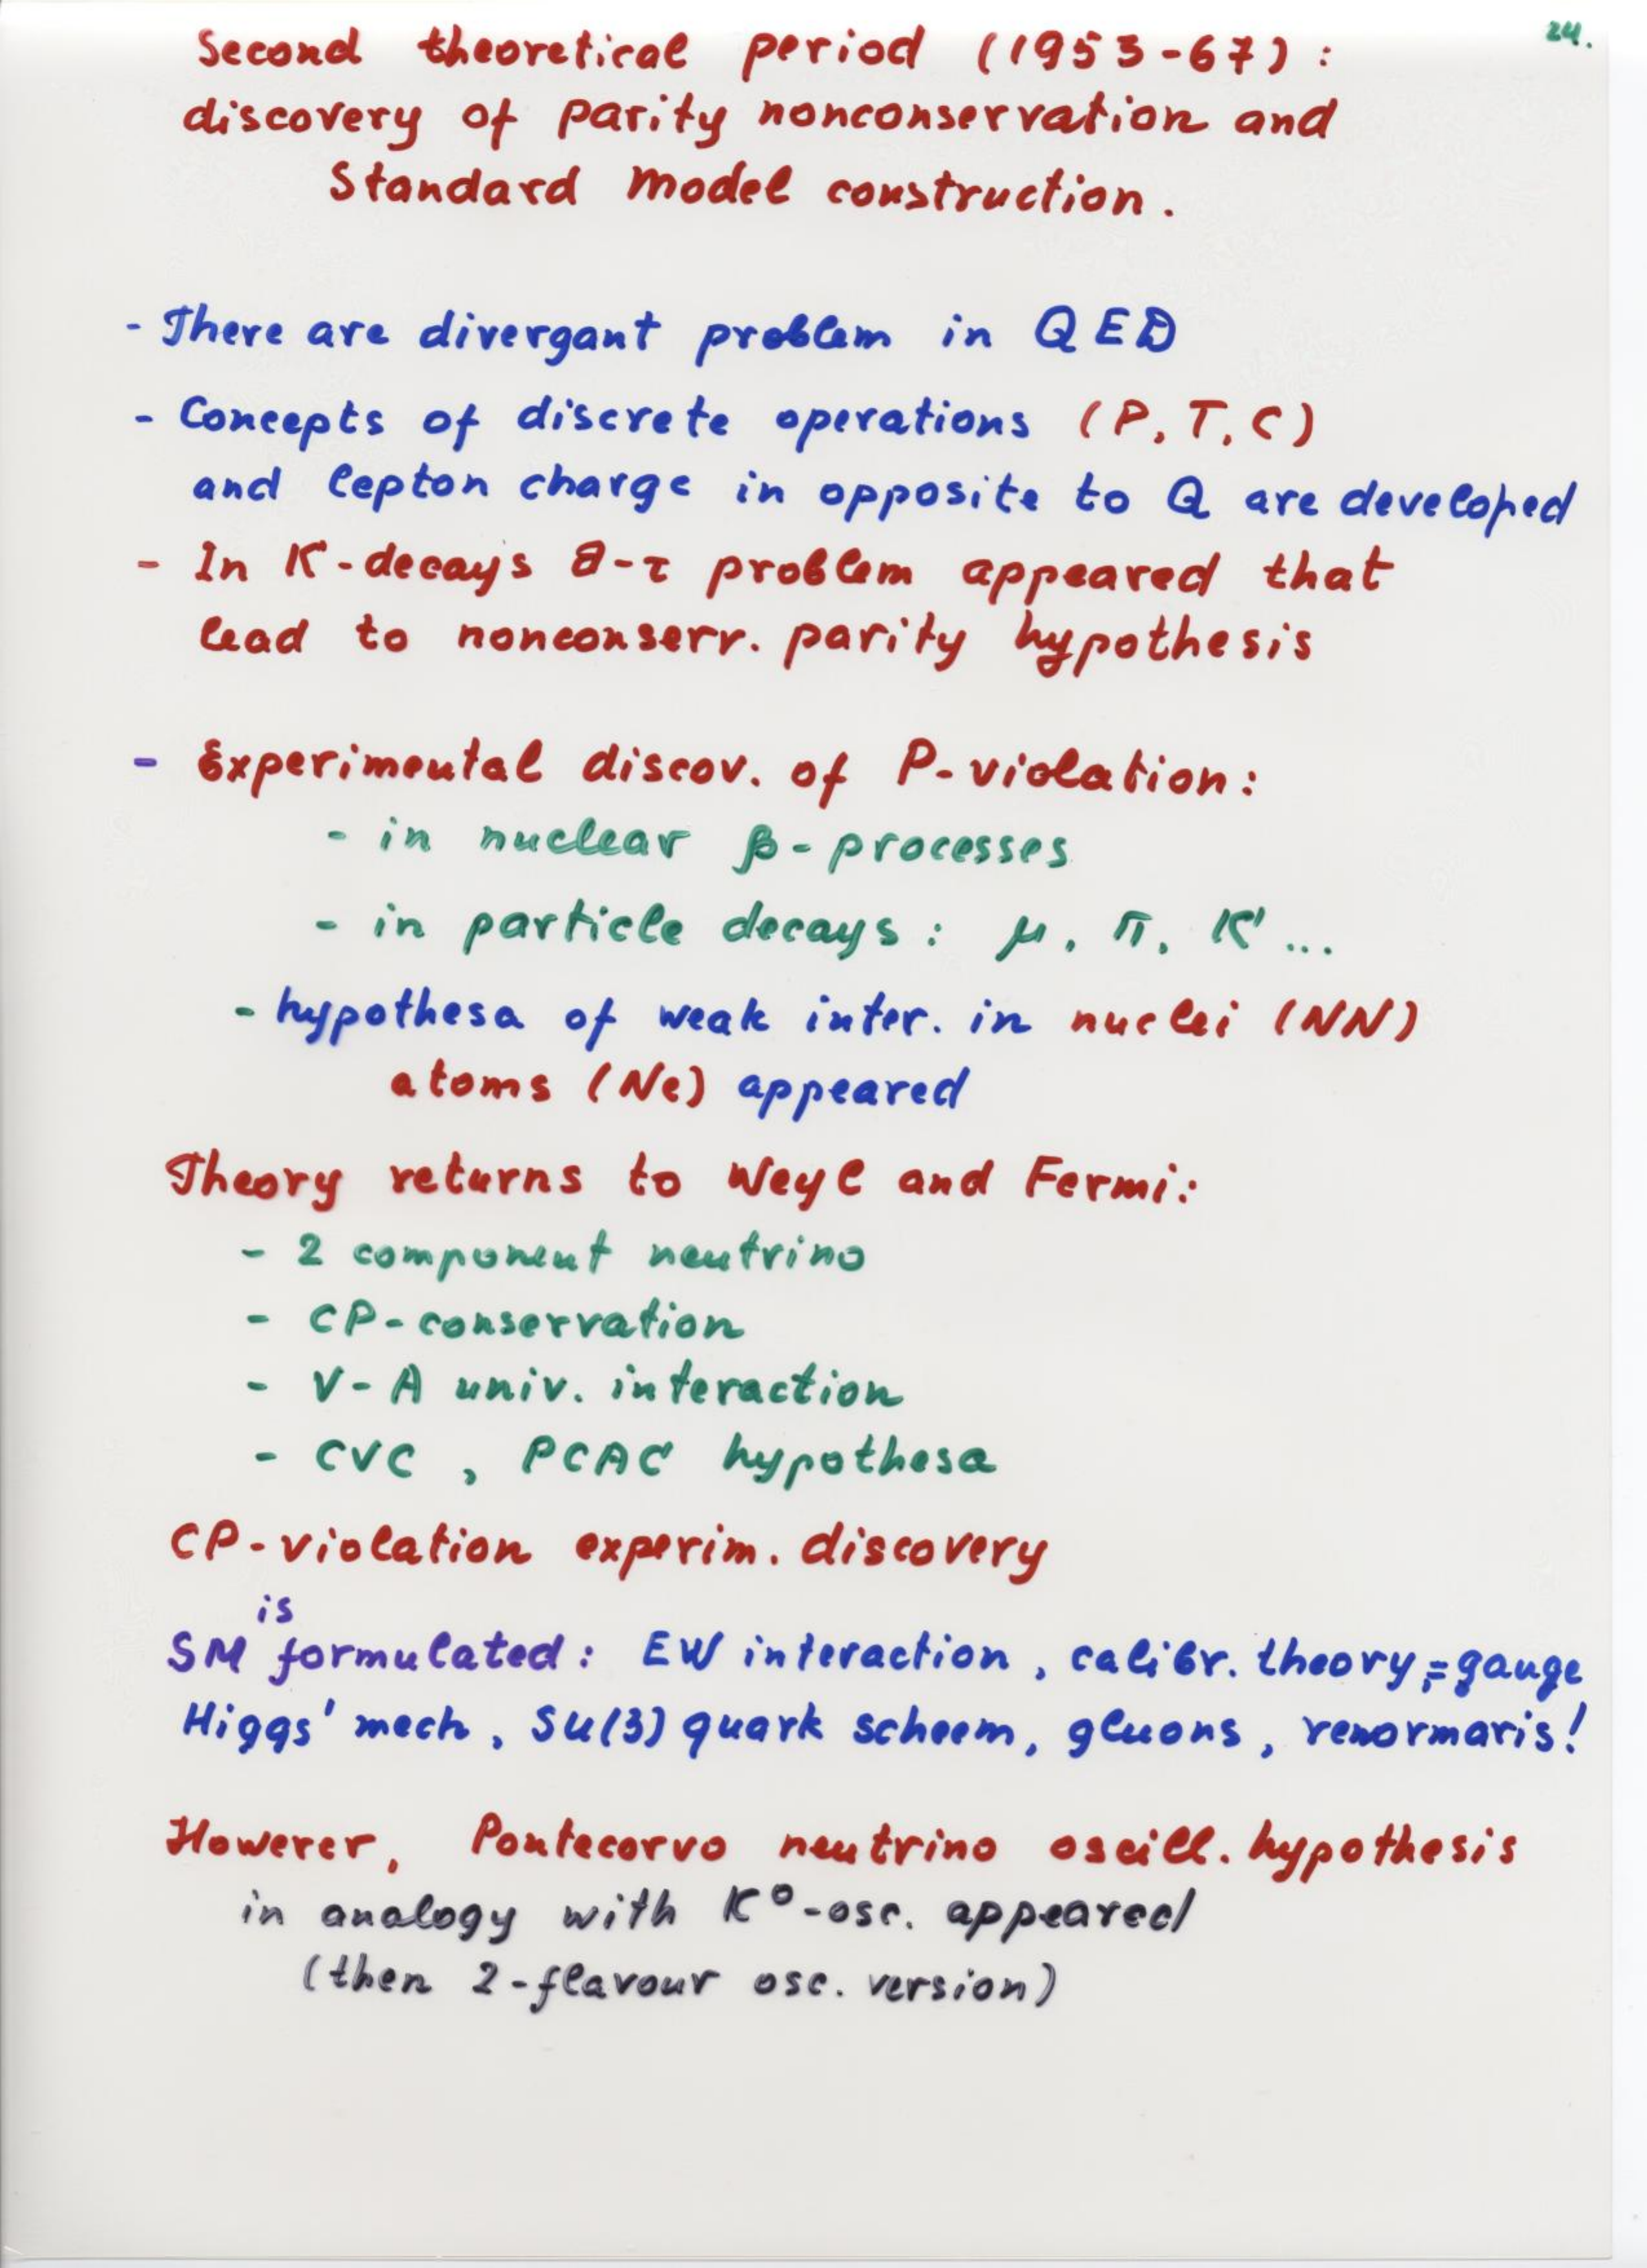 24.
Second theoretical period (1953-67):
discovery of parity nonconservation and
Standard Model construction.
- There are divergant problem in QED
- Concepts of discrete operations (P, T, C)
and lepton charge in opposite to Q are developed
- In K-decays θ-τ problem appeared that
lead to nonconserv. parity hypothesis
- Experimental discov. of P-violation:
- in nuclear β-processes
- in particle decays: μ, π, K ...
- hypothesa of weak inter. in nuclei (NN)
atoms (Ne) appeared
Theory returns to Weyl and Fermi:
- 2 component neutrino
- CP-conservation
- V-A univ. interaction
- CVC, PCAC hypothesa
CP-violation experim. discovery
is
SM formulated: EW interaction, calibr. theory, = gauge
Higgs' mech, SU(3) quark scheem, gluons, renormaris!
However, Pontecorvo neutrino oscill. hypothesis
in analogy with K°-osc. appeared
(then 2-flavour osc. version)